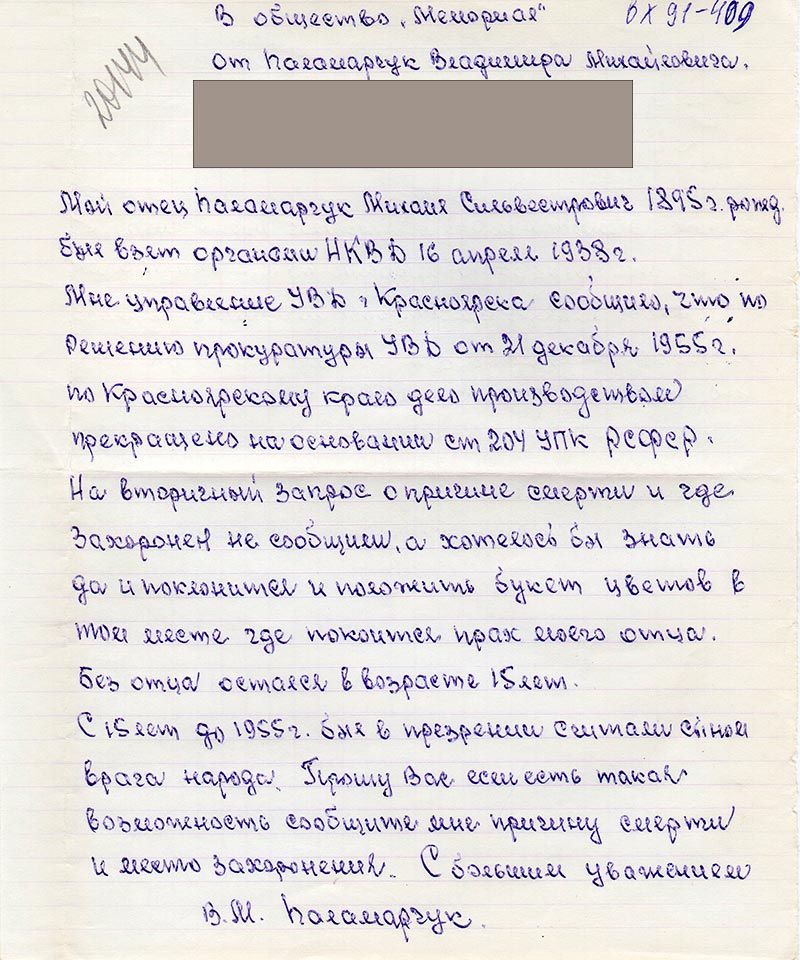 В общество „Мемориал"
ВХ 91-409
20144
от Паламарчук Владимира Михайловича.
Мой отец Паламарчук Михаил Сильвестрович 1895г. рожд.
был взят органами НКВД 16 апреля 1938г.
Мне управление УВД г Красноярска сообщило, что по
решению прокуратуры УВД от 21 декабря 1955г.
по Красноярскому краю дело производством
прекращено на основании ст 204 УПК РСФСР.
На вторичный запрос о причине смерти и где
захоронен не сообщили, а хотелось бы знать
да и поклонится и положить букет цветов в
том месте где покоится прах моего отца.
Без отца остался в возрасте 15 лет.
С 15 лет до 1955г. был в презрении считали сыном
врага народа. Прошу Вас если есть такая
возможность сообщите мне причину смерти
и место захоронения. С большим уважением
В.М. Паламарчук.